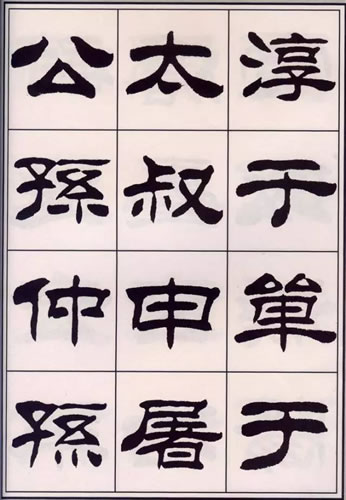 淳于單于
太叔申屠
公孫仲孫